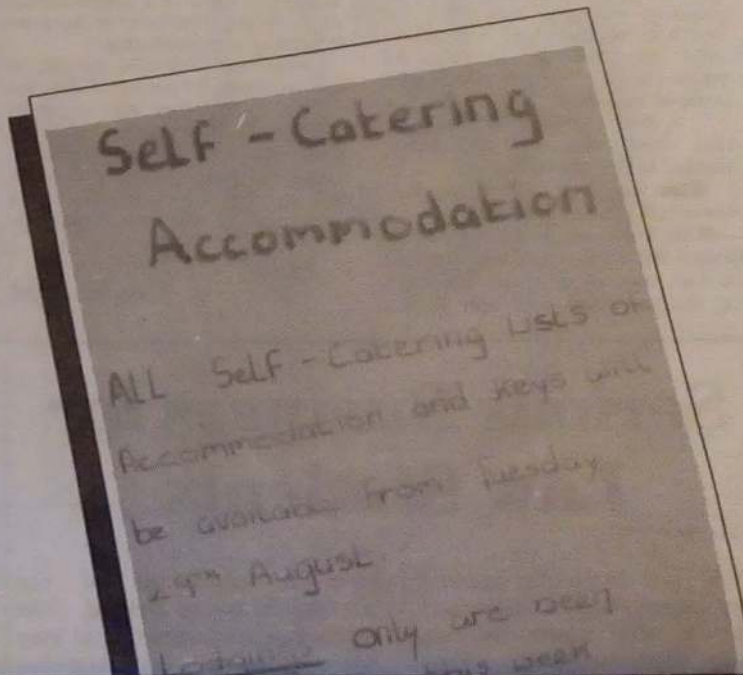 Self - Catering
Accommodation
ALL Self - Catering Lists of
Accommodation and Keys will
be available from Tuesday
29th August
Lodgings only are been
this week